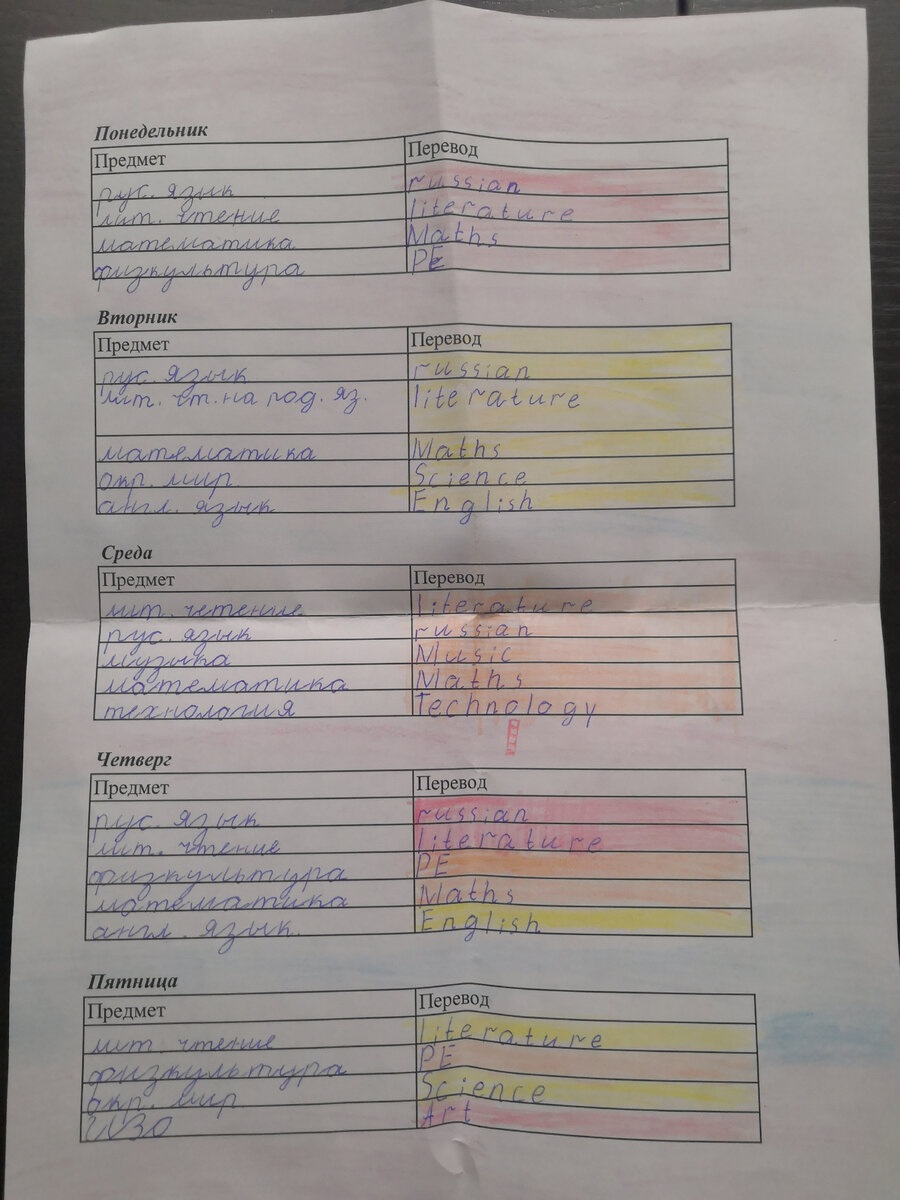 Понедельник
Предмет Перевод
рус. язык russian
лит. чтение literature
математика Maths
физкультура PE
Вторник
Предмет Перевод
рус. язык russian
лит. чт. на род. яз. literature
математика Maths
окр. мир. Science
англ. язык English
Среда
Предмет Перевод
лит. четение literature
рус. язык russian
музыка Music
математика Maths
технология Technology
Четверг
Предмет Перевод
рус. язык russian
лит. чтение literature
физкультура PE
математика Maths
англ. язык. English
Пятница
Предмет Перевод
лит. чтение literature
физкультура PE
окр. мир Science
ИЗО Art